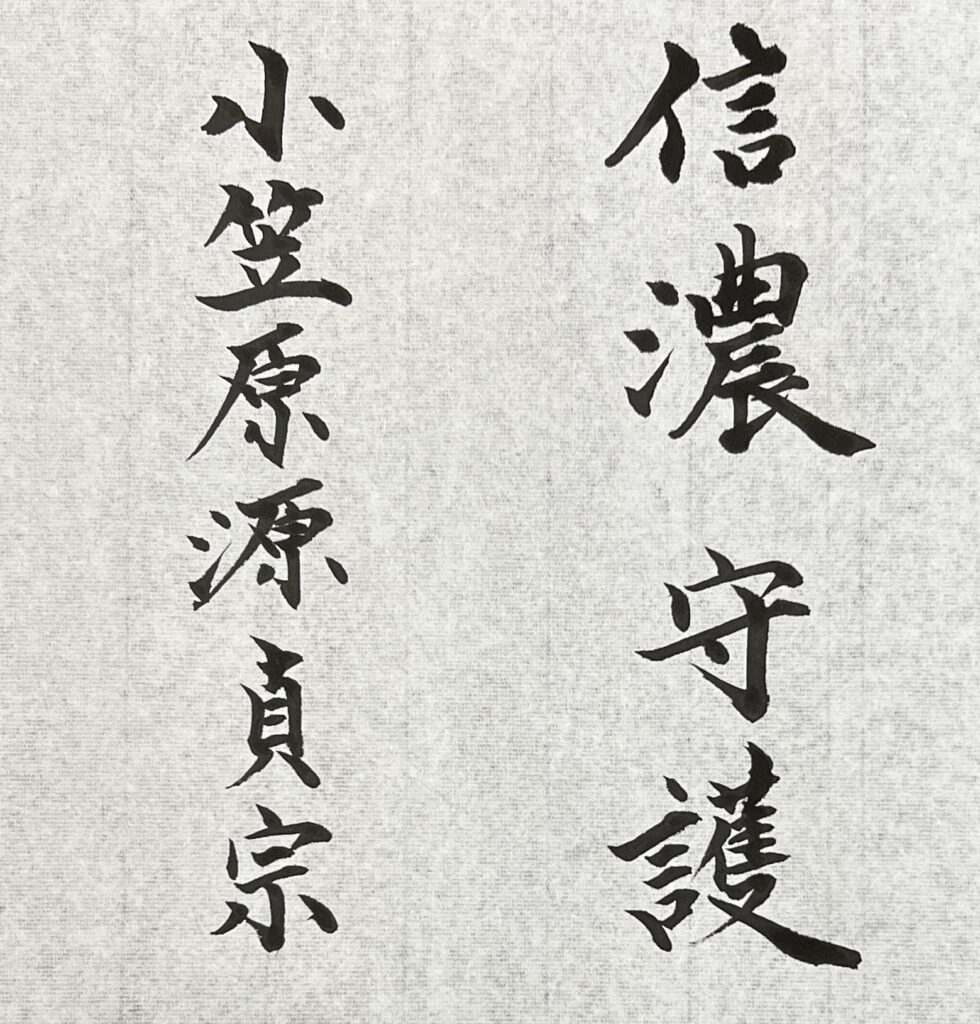 信濃守護
小笠原源貞宗